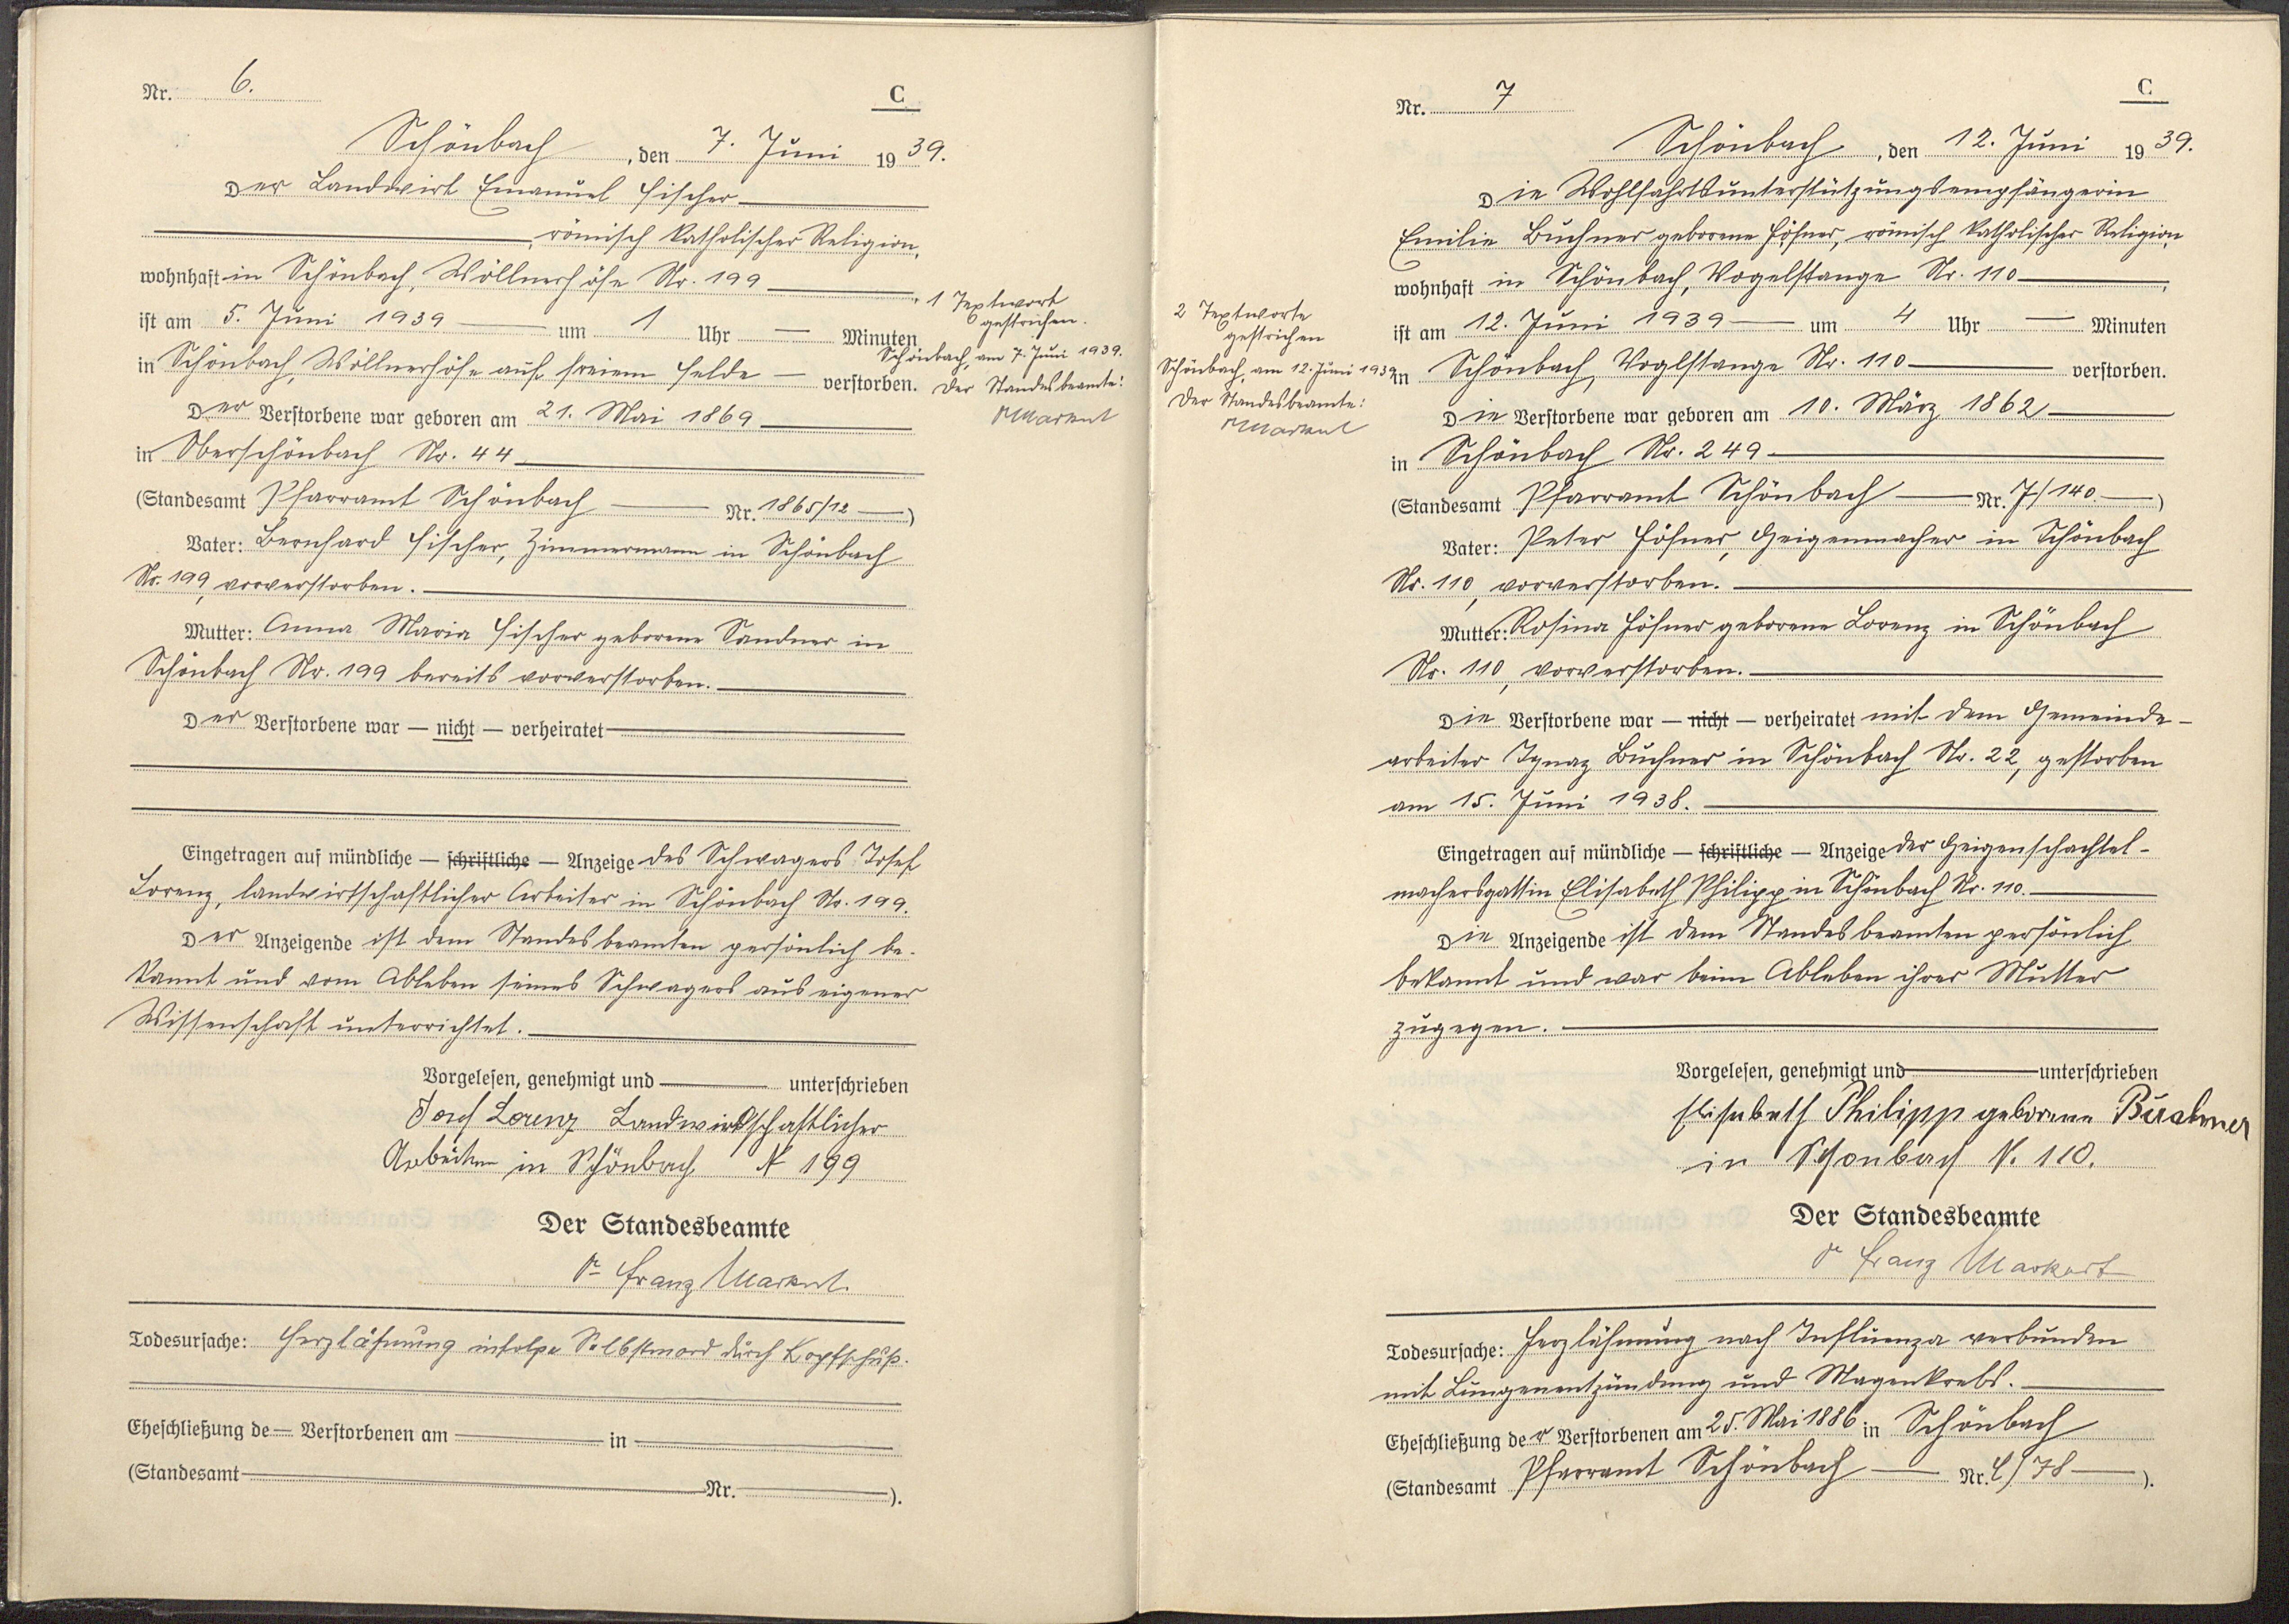 Nr. 6.
C
Schönbach, den 7. Juni 1939.
Der Landwirt Emanuel Fischer
, römisch katholischer Religion,
wohnhaft in Schönbach, Wöllnerhöfe Nr. 199,
ist am 5. Juni 1939 um 1 Uhr — Minuten
in Schönbach, Wöllnerhöfe auf freiem Felde — verstorben.
Der Verstorbene war geboren am 21. Mai 1869
in Oberschönbach Nr. 44
(Standesamt Pfarramt Schönbach — Nr. 1865/12 —)
Vater: Bernhard Fischer, Zimmermann in Schönbach
Nr. 199, vorverstorben.
Mutter: Anna Maria Fischer geborene Sandner in
Schönbach Nr. 199 bereits vorverstorben.
Der Verstorbene war — nicht — verheiratet
Eingetragen auf mündliche — schriftliche — Anzeige des Schwagers Josef
Lorenz, landwirtschaftlicher Arbeiter in Schönbach Nr. 199.
Der Anzeigende ist dem Standesbeamten persönlich be-
kannt und vom Ableben seines Schwagers aus eigener
Wissenschaft unterrichtet.
Vorgelesen, genehmigt und — unterschrieben
Josef Lorenz Landwirtschaftlicher
Arbeiter in Schönbach N 199
Der Standesbeamte
Dr Franz Markert
Todesursache: Herzlähmung infolge Selbstmord durch Kopfschuß.
Eheschließung de— Verstorbenen am — in —
(Standesamt — Nr. —).
1 Textwort
gestrichen.
Schönbach, am 7. Juni 1939.
Der Standesbeamte:
Markert
Nr. 7
C
Schönbach, den 12. Juni 1939.
Die Wohlfahrtsunterstützungsempfängerin
Emilie Buchner geborene Höfner, römisch katholischer Religion,
wohnhaft in Schönbach, Vogelstange Nr. 110,
ist am 12. Juni 1939 — um 4 Uhr — Minuten
in Schönbach, Voglstange Nr. 110 — verstorben.
Die Verstorbene war geboren am 10. März 1862
in Schönbach Nr. 249
(Standesamt Pfarramt Schönbach — Nr. 7/140 —)
Vater: Peter Höfner, Geigenmacher in Schönbach
Nr. 110, vorverstorben.
Mutter: Rosina Höfner geborene Lorenz in Schönbach
Nr. 110, vorverstorben.
Die Verstorbene war — nicht — verheiratet mit dem Gemeinde-
arbeiter Ignaz Buchner in Schönbach Nr. 22, gestorben
am 15. Juni 1938.
Eingetragen auf mündliche — schriftliche — Anzeige der Geigenschachtel-
machersgattin Elisabeth Philipp in Schönbach Nr. 110.
Die Anzeigende ist dem Standesbeamten persönlich
bekannt und war beim Ableben ihrer Mutter
zugegen.
Vorgelesen, genehmigt und — unterschrieben
Elisabeth Philipp geborene Buchner
in Schonbach N. 110.
Der Standesbeamte
Dr Franz Markert
Todesursache: Herzlähmung nach Influenza verbunden
mit Lungenentzündung und Magenkrebs.
Eheschließung der Verstorbenen am 25. Mai 1886 in Schönbach
(Standesamt Pfarramt Schönbach — Nr. /78 —).
2 Textworte
gestrichen
Schönbach, am 12. Juni 1939
Der Standesbeamte:
Markert